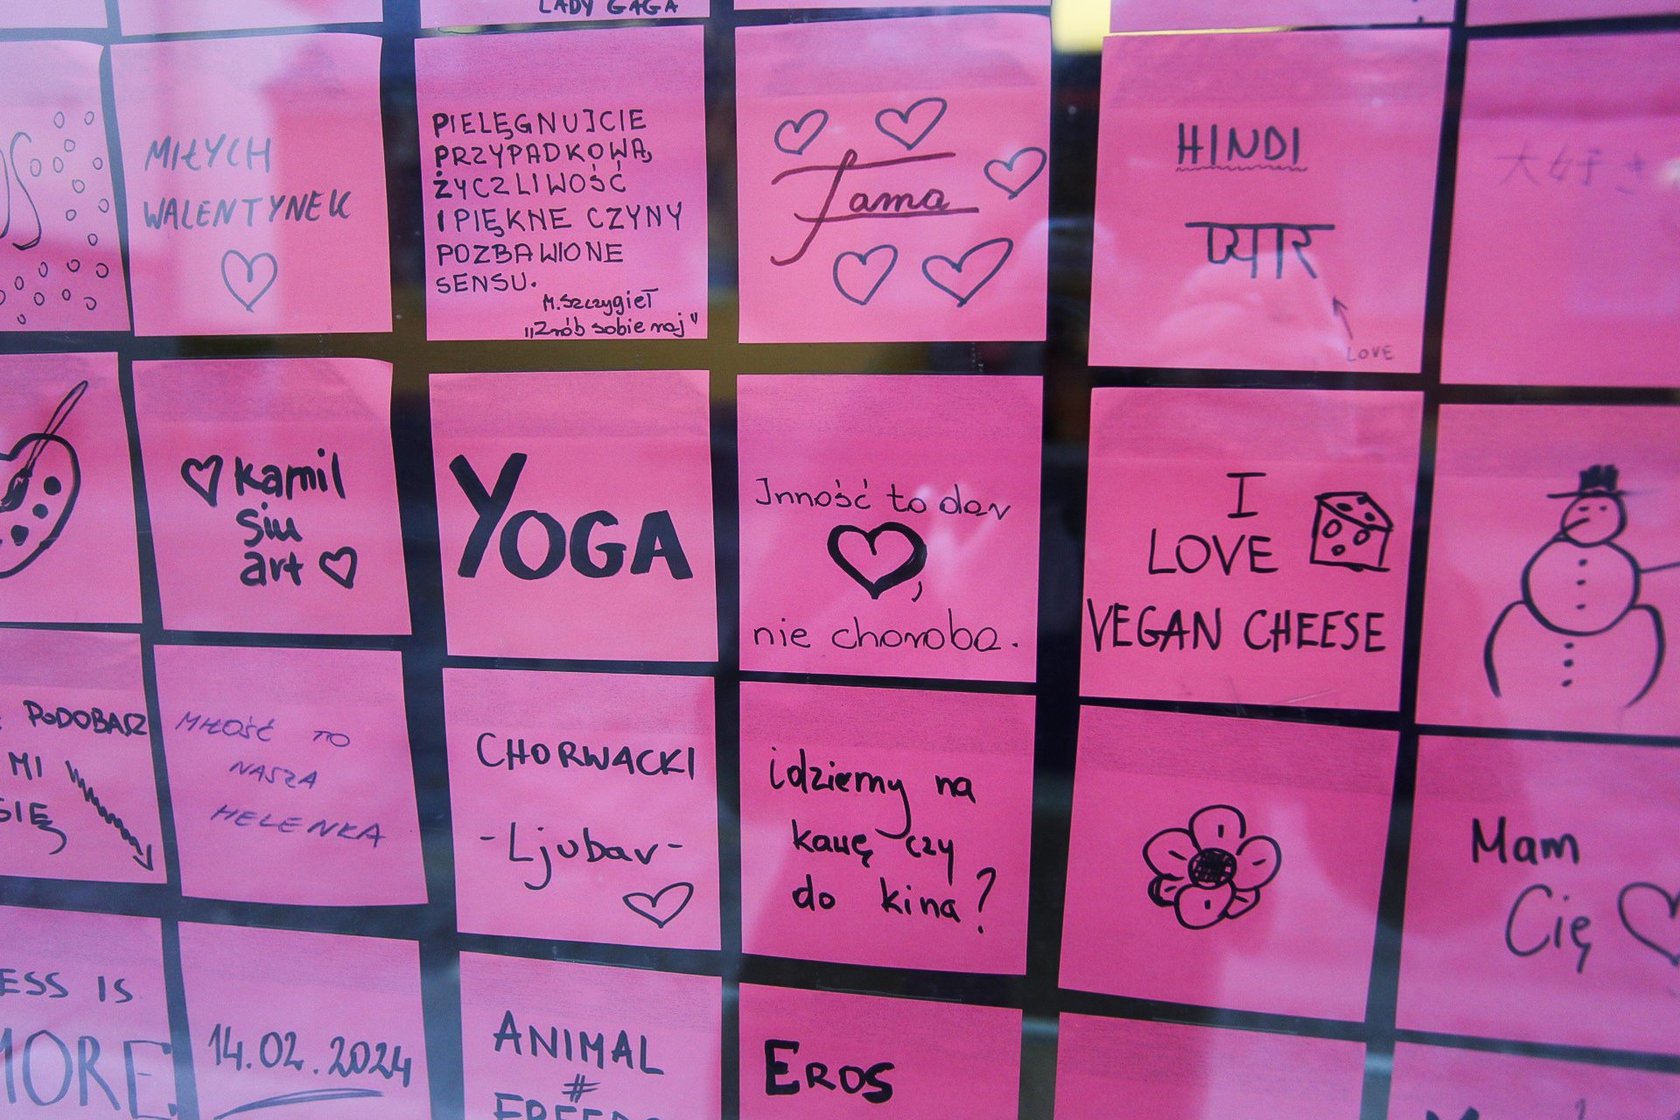 LADY GAGA
MIŁYCH
WALENTYNEK
PIELĘGNUJCIE
PRZYPADKOWĄ
ŻYCZLIWOŚĆ
I PIĘKNE CZYNY
POZBAWIONE
SENSU.
M. Szczygieł
„Zrób sobie raj"
Jama
HINDI
प्यार
LOVE
大好き
Kamil
siu
art
YOGA
Inność to dar
,
nie choroba.
I
LOVE
VEGAN CHEESE
PODOBASZ
MI
SIĘ
MIŁOŚĆ TO
NASZA
HELENKA
CHORWACKI
-Ljubav-
idziemy na
kawę czy
do kina?
Mam
Cię
ESS IS
MORE
14.02.2024
ANIMAL
#
EROS